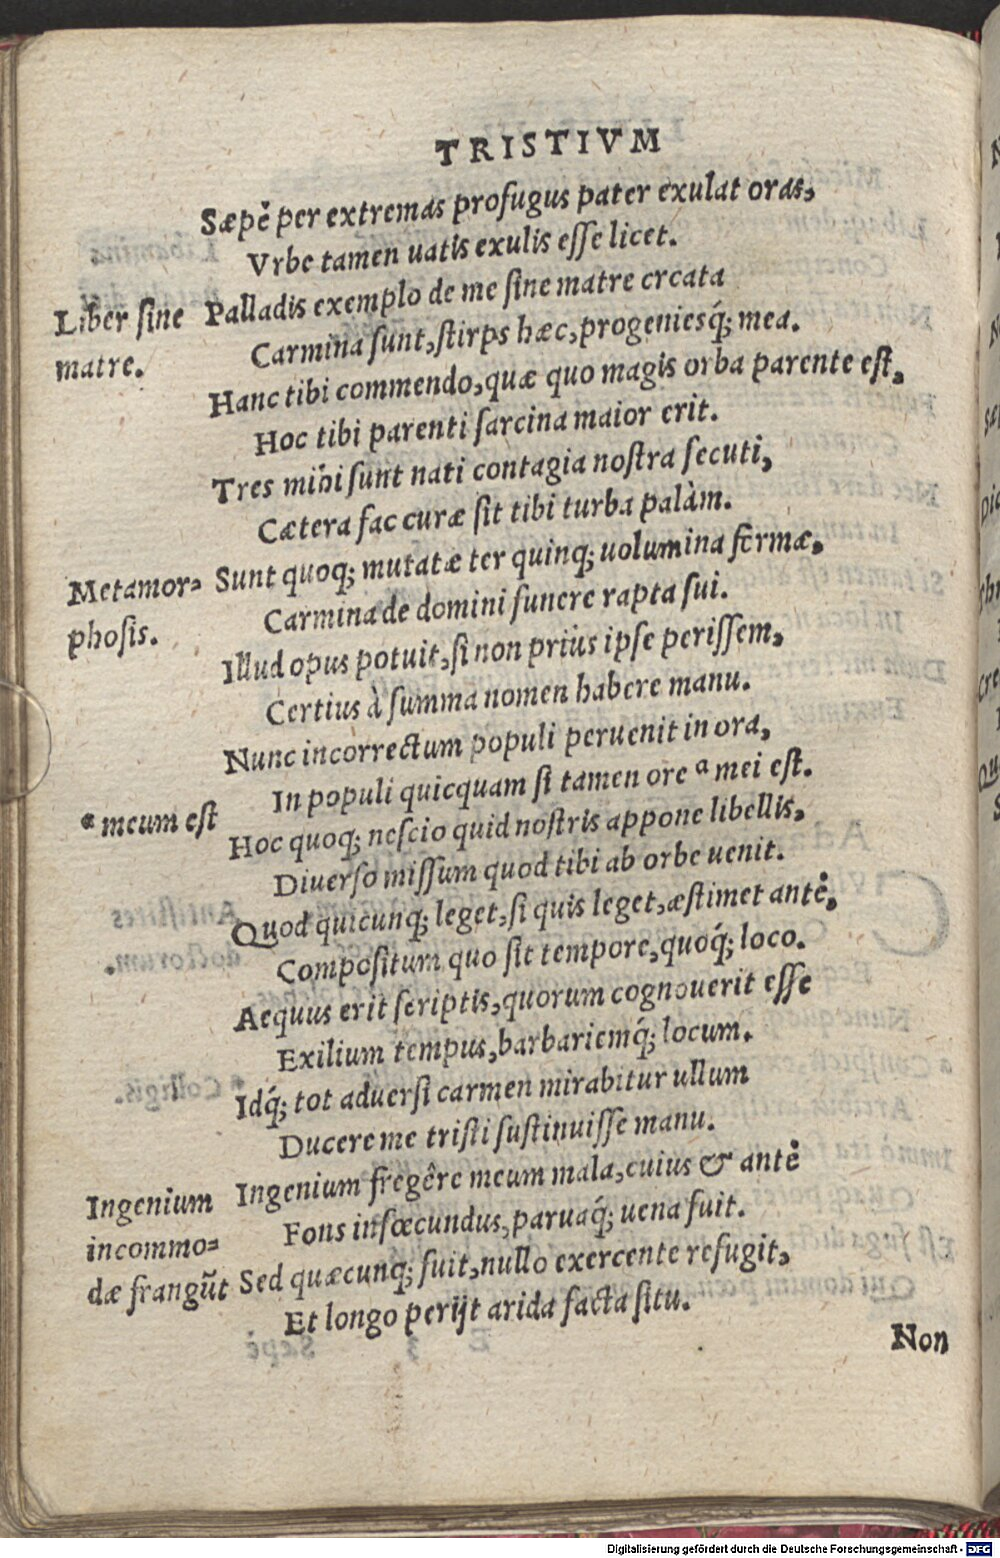 TRISTIVM
Sæpè per extremas profugus pater exulat oras,
Vrbe tamen uatis exulis esse licet.
Liber sine
matre.
Palladis exemplo de me sine matre creata
Carmina sunt, stirps hæc, progeniesq́; mea.
Hanc tibi commendo, quæ quo magis orba parente est,
Hoc tibi parenti sarcina maior erit.
Tres mihi sunt nati contagia nostra secuti,
Cætera fac curæ sit tibi turba palàm.
Metamor=
phosis.
Sunt quoq; mutatæ ter quinq; uolumina formæ,
Carmina de domini funere rapta sui.
Illud opus potuit, si non priùs ipse perissem,
Certius à summa nomen habere manu.
Nunc incorrectum populi peruenit in ora,
In populi quicquam si tamen ore ᵃ mei est.
ᵃ meum est
Hoc quoq; nescio quid nostris appone libellis,
Diuerso missum quod tibi ab orbe uenit.
Quod quicunq; leget, si quis leget, æstimet antè,
Compositum quo sit tempore, quoq́; loco.
Aequus erit scriptis, quorum cognouerit esse
Exilium tempus, barbariemq́; locum.
Idq́; tot aduersi carmen mirabitur ullum
Ducere me tristi sustinuisse manu.
Ingenium
incommo=
dæ frangũt
Ingenium fregêre meum mala, cuius & antè
Fons infœcundus, paruaq́; uena fuit.
Sed quæcunq; fuit, nullo exercente refugit,
Et longo perijt arida facta situ.
Non
Digitalisierung gefördert durch die Deutsche Forschungsgemeinschaft - DFG